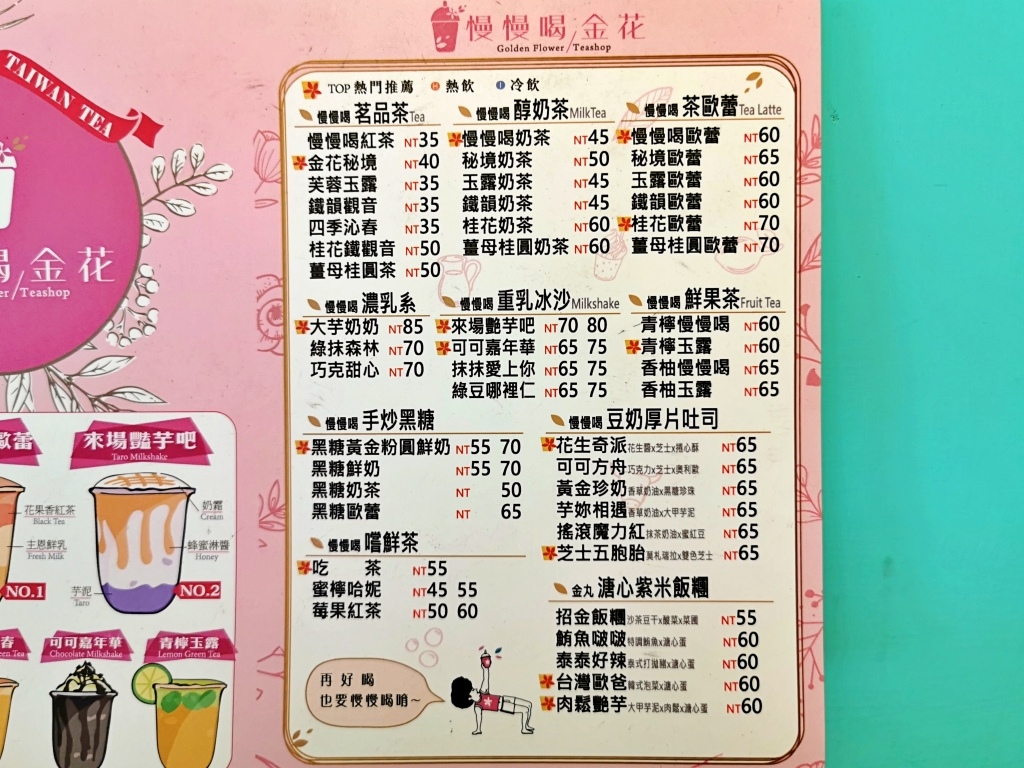 慢慢喝/金花
Golden Flower/Teashop
TAIWAN TEA
喝/金花
wer/Teashop
TOP 熱門推薦 H 熱飲 I 冷飲
慢慢喝 茗品茶 Tea
慢慢喝紅茶 NT35
金花秘境 NT40
芙蓉玉露 NT35
鐵韻觀音 NT35
四季沁春 NT35
桂花鐵觀音 NT50
薑母桂圓茶 NT50
慢慢喝 醇奶茶 MilkTea
慢慢喝奶茶 NT45
秘境奶茶 NT50
玉露奶茶 NT45
鐵韻奶茶 NT45
桂花奶茶 NT60
薑母桂圓奶茶 NT60
慢慢喝 茶歐蕾 Tea Latte
慢慢喝歐蕾 NT60
秘境歐蕾 NT65
玉露歐蕾 NT60
鐵韻歐蕾 NT60
桂花歐蕾 NT70
薑母桂圓歐蕾 NT70
慢慢喝 濃乳系
大芋奶奶 NT85
綠抹森林 NT70
巧克甜心 NT70
慢慢喝 重乳冰沙 Milkshake
來場艷芋吧 NT70 80
可可嘉年華 NT65 75
抹抹愛上你 NT65 75
綠豆哪裡仁 NT65 75
慢慢喝 鮮果茶 Fruit Tea
青檸慢慢喝 NT60
青檸玉露 NT60
香柚慢慢喝 NT65
香柚玉露 NT65
慢慢喝 手炒黑糖
黑糖黃金粉圓鮮奶 NT55 70
黑糖鮮奶 NT55 70
黑糖奶茶 NT 50
黑糖歐蕾 NT 65
慢慢喝 嚐鮮茶
吃 茶 NT55
蜜檸哈妮 NT45 55
莓果紅茶 NT50 60
慢慢喝 豆奶厚片吐司
花生奇派 花生醬x芝士x捲心酥 NT65
可可方舟 巧克力x芝士x奧利歐 NT65
黃金珍奶 香草奶油x黑糖珍珠 NT65
芋妳相遇 香草奶油x大甲芋泥 NT65
搖滾魔力紅 抹茶奶油x蜜紅豆 NT65
芝士五胞胎 莫札瑞拉x雙色芝士 NT65
金丸 溏心紫米飯糰
招金飯糰 沙茶豆干x酸菜x菜圃 NT55
鮪魚啵啵 特調鮪魚x溏心蛋 NT60
泰泰好辣 泰式打拋豬x溏心蛋 NT60
台灣歐爸 韓式泡菜x溏心蛋 NT60
肉鬆艷芋 大甲芋泥x肉鬆x溏心蛋 NT60
再好喝
也要慢慢喝唷~
歐蕾
來場豔芋吧
Taro Milkshake
花果香紅茶
Black Tea
主恩鮮乳
Fresh Milk
奶霜
Cream
蜂蜜淋醬
Honey
芋泥
Taro
NO.1
NO.2
春
een Tea
可可嘉年華
Chocolate Milkshake
青檸玉露
Lemon Green Tea